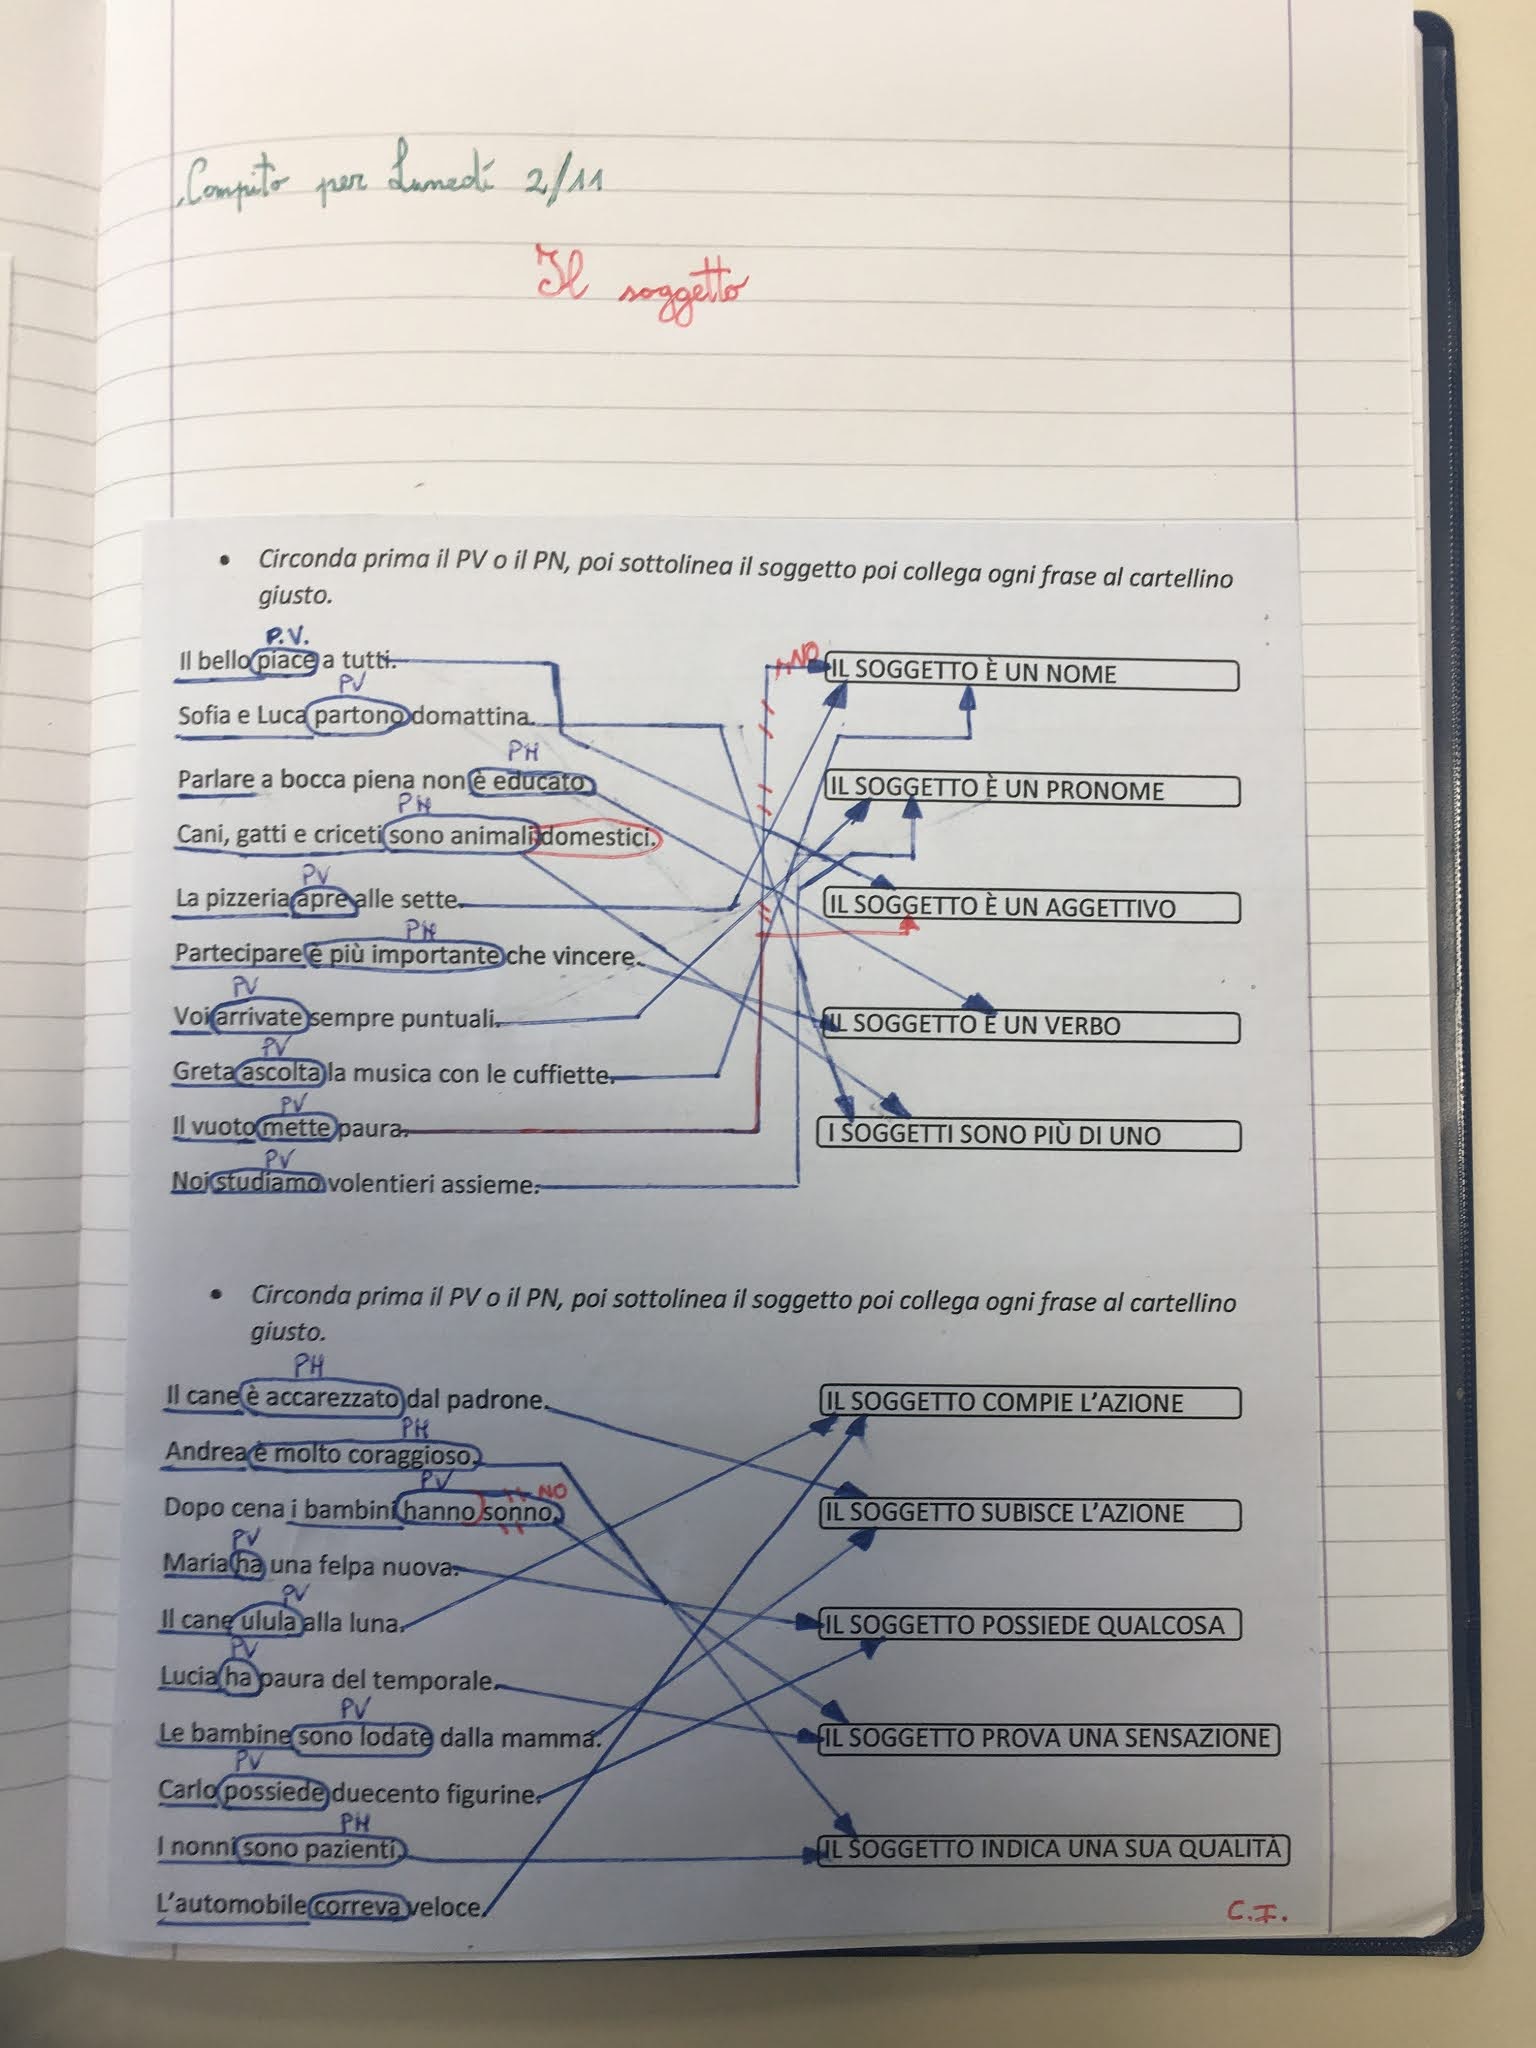 Compito per Lunedí 2/11
Il soggetto
• Circonda prima il PV o il PN, poi sottolinea il soggetto poi collega ogni frase al cartellino
giusto.
P.V.
Il bello piace a tutti.
NO
IL SOGGETTO È UN NOME
PV
Sofia e Luca partono domattina.
PN
Parlare a bocca piena non è educato
IL SOGGETTO È UN PRONOME
PN
Cani, gatti e criceti sono animali domestici.
PV
La pizzeria apre alle sette.
IL SOGGETTO È UN AGGETTIVO
PN
Partecipare è più importante che vincere.
PV
Voi arrivate sempre puntuali.
IL SOGGETTO È UN VERBO
PV
Greta ascolta la musica con le cuffiette.
PV
Il vuoto mette paura.
I SOGGETTI SONO PIÙ DI UNO
PV
Noi studiamo volentieri assieme.
• Circonda prima il PV o il PN, poi sottolinea il soggetto poi collega ogni frase al cartellino
giusto.
PN
Il cane è accarezzato dal padrone.
IL SOGGETTO COMPIE L'AZIONE
PN
Andrea è molto coraggioso.
PV NO
Dopo cena i bambini hanno sonno.
IL SOGGETTO SUBISCE L'AZIONE
PV
Maria ha una felpa nuova.
PV
Il cane ulula alla luna.
IL SOGGETTO POSSIEDE QUALCOSA
PV
Lucia ha paura del temporale.
PV
Le bambine sono lodate dalla mamma.
IL SOGGETTO PROVA UNA SENSAZIONE
PV
Carlo possiede duecento figurine.
PN
I nonni sono pazienti.
IL SOGGETTO INDICA UNA SUA QUALITÀ
L'automobile correva veloce.
C.I.